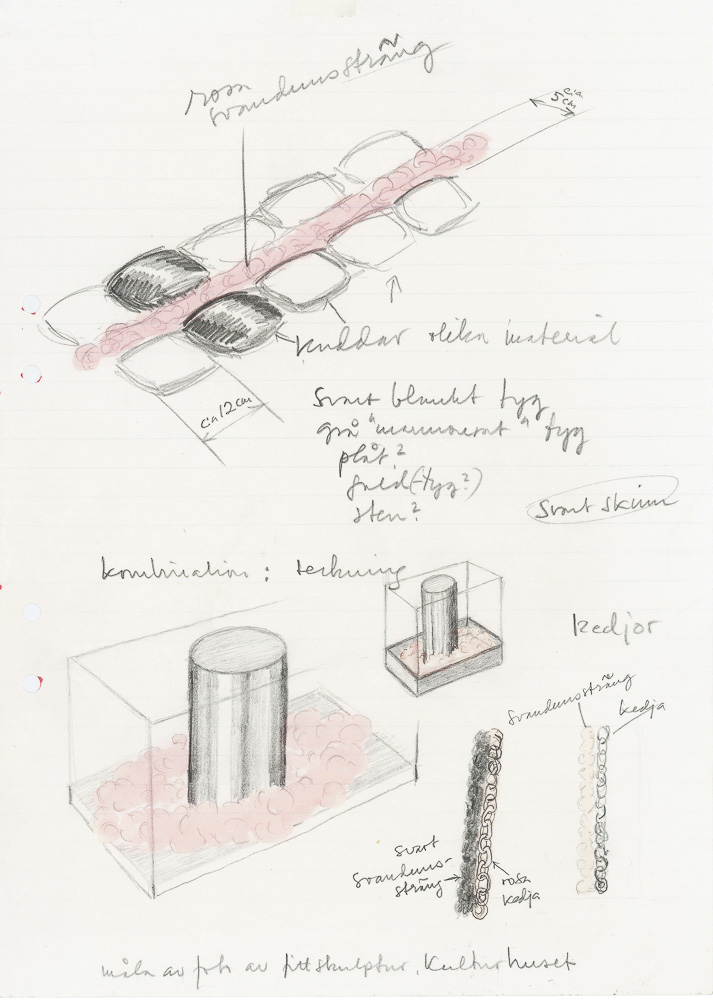 rosa
svandunssträng
cia
5 cm
kuddar olika material
ca 12 cm
Svart blankt tyg
grå "marmorerat" tyg
plåt?
guld (tyg?)
sten?
svart skinn
kombination: teckning
kedjor
svandunssträng
kedja
svart
svanduns-
sträng
rosa
kedja
måla av foto av tittskulptur, Kulturhuset